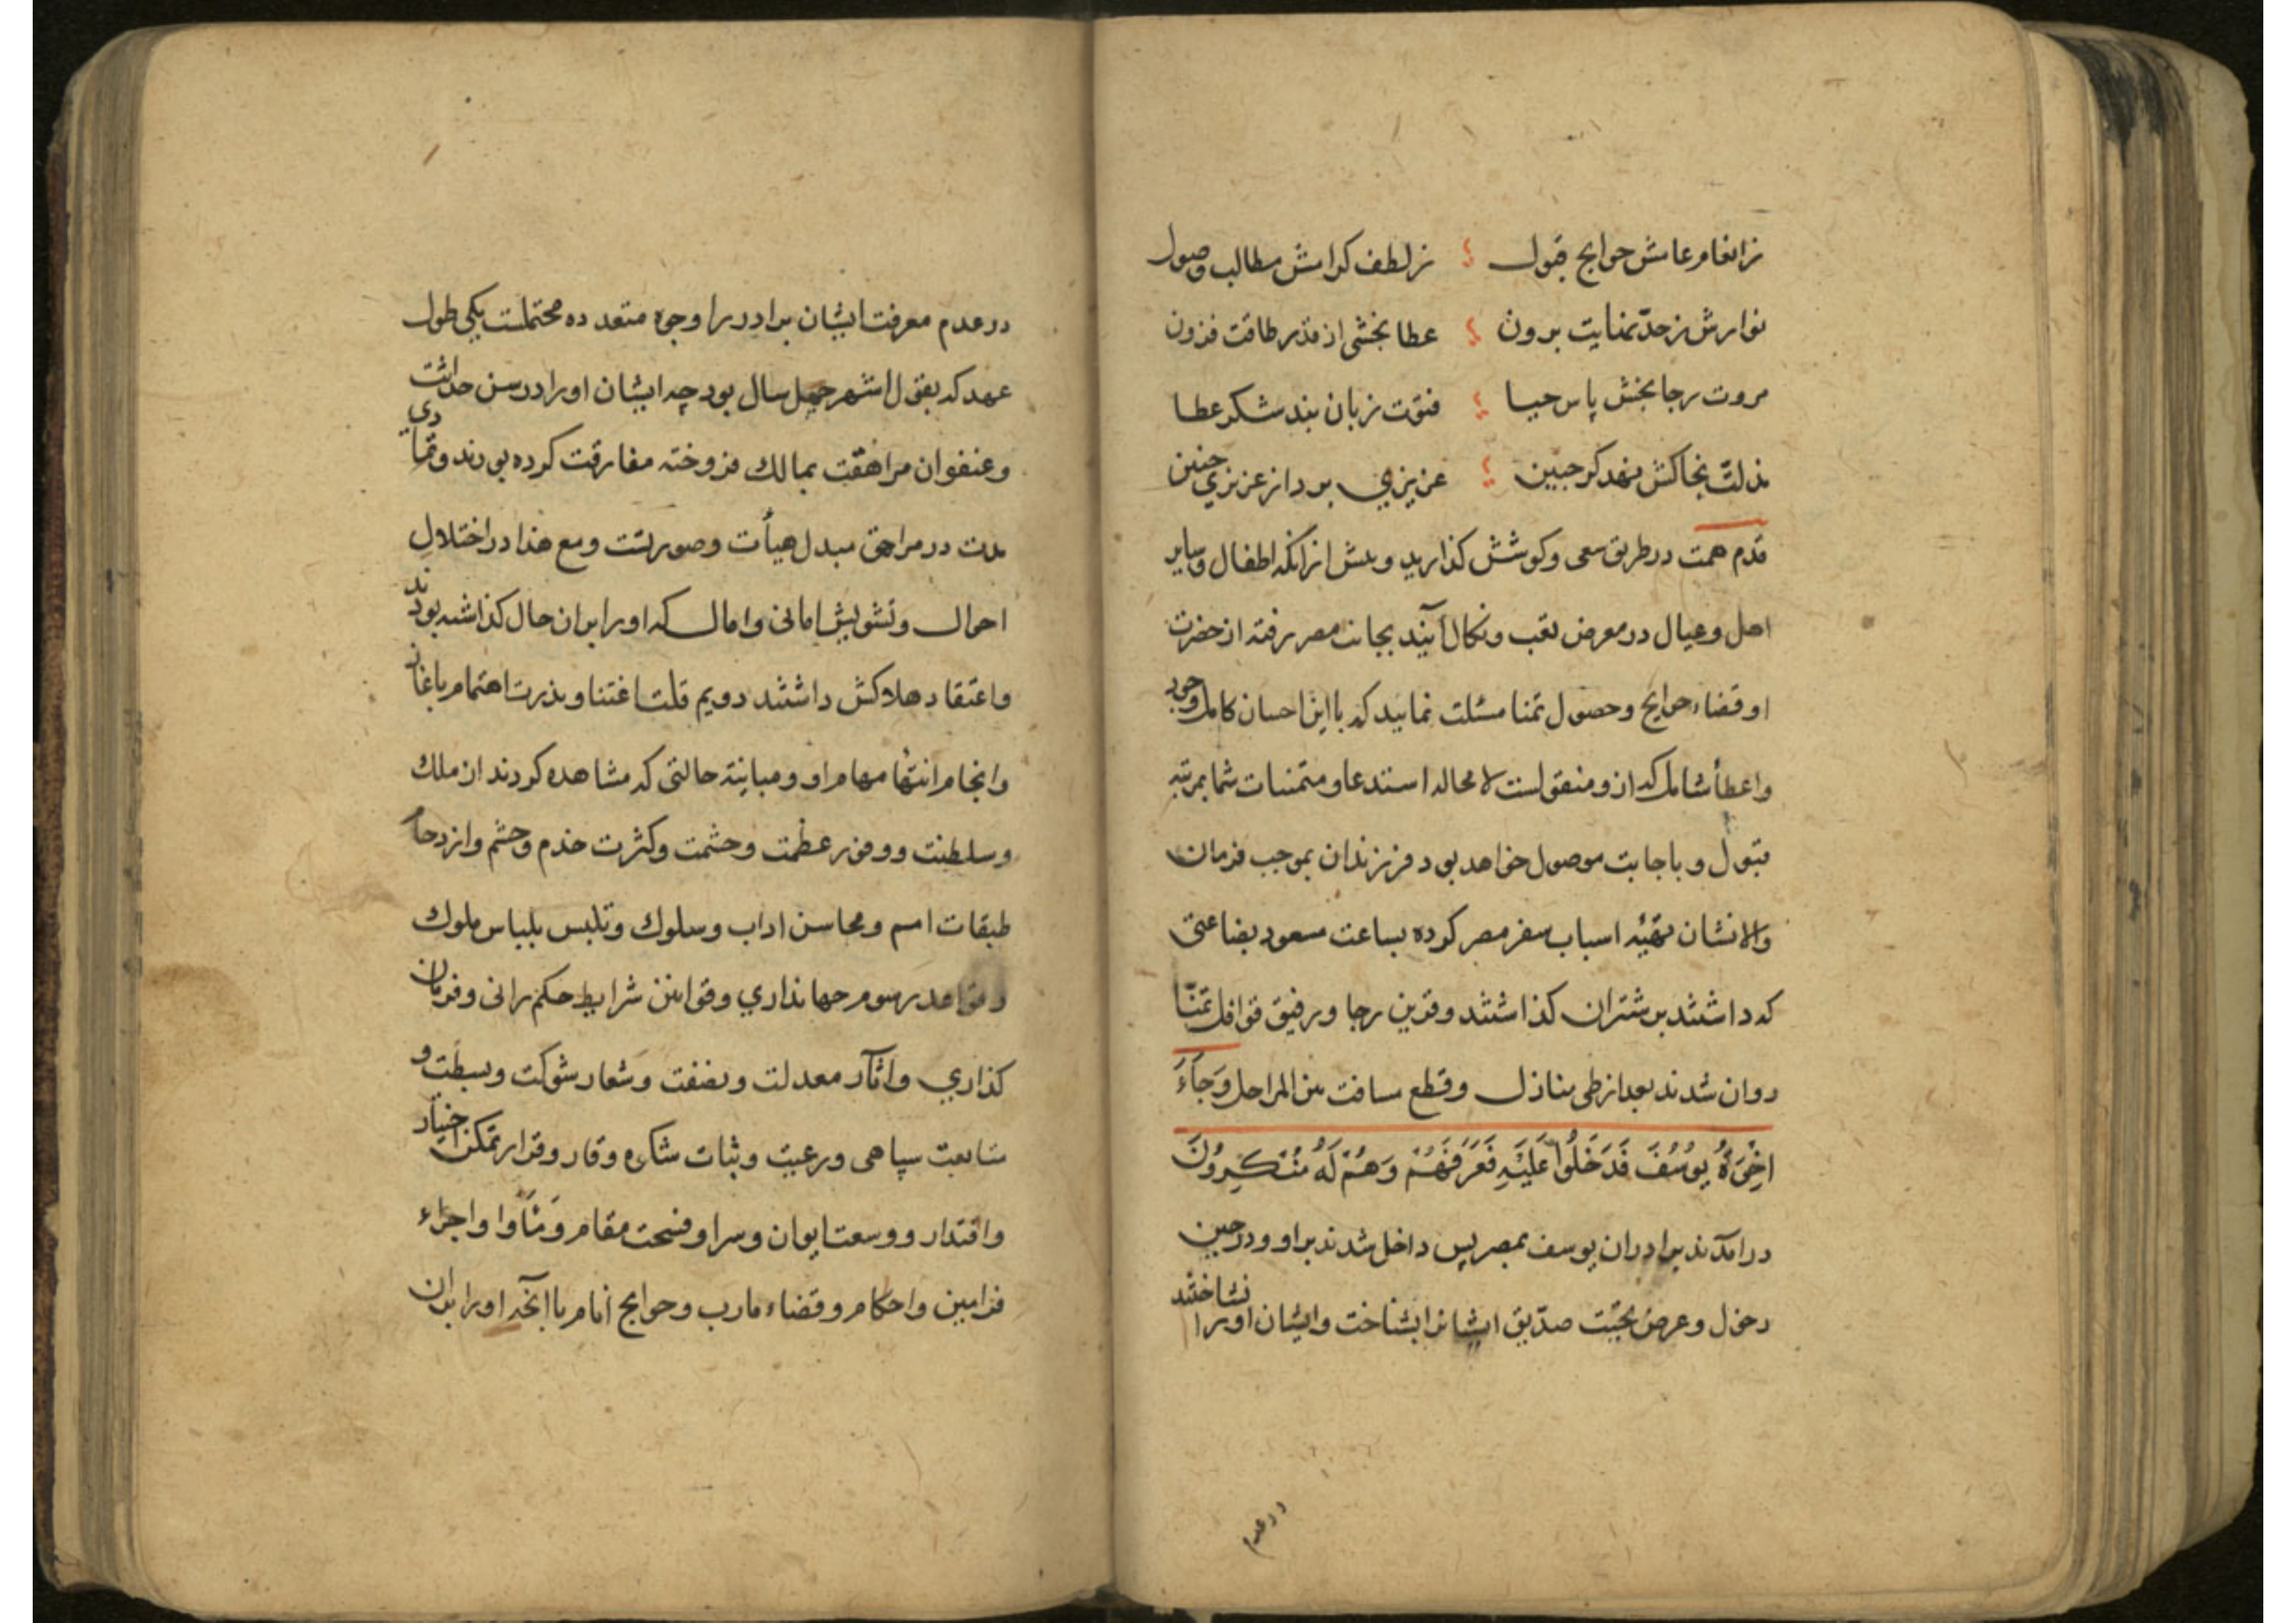 زانعام عامش حوایج قبول ؛ زلطف کرامش مطالب وصول
نوازش ز حدّ تمنایت برون ؛ عطا بخشی از قدر طاقت فزون
مروت رجا بخش پاس حیا ؛ فتوّت زبان بند شکر عطا
مذلت بخاکش نهد کر جبین ؛ عزیزی برد از عزیزی چنین
قدم همت در طریق سعی وکوشش کذارید و پیش ازانکه اطفال وسایر
اهل وعیال در معرض تعب ونکال آیند بجانب مصر رفته از حضرت
او قضاء حوایج وحصول تمنا مسئلت نمایید که با این احسان کامل وجود
واعطأ شامل که ازو منقولست لا محاله استدعا و متمنیات شما بمرتبه
قبول و باجابت موصول خواهد بود فرزندان بموجب فرمان
والانشان تهیّه اسباب سفر مصر کرده بساعت مسعود بضاعتی
که داشتند بر شتران کذاشتند وقرین رجا ورفیق قوافل تمنّا
روان شدند بعد از طی منازل وقطع مسافت بین المراحل وَجَآءَ
اِخْوَةُ یوُسُفَ فَدَخَلُوا عَلَیْهِ فَعَرَفَهُمْ وَهُمْ لَهُ مُنْکِروُنَ
درآمدند برادران یوسف بمصر پس داخل شدند براو ودرحین
دخول وعرض تحیّت صدّیق ایشانرا بشناخت وایشان اورا نشاختند
درعدم
درعدم معرفت ایشان برادر را وجوه متعدده محتملست یکی طول
عهد که بقول اشهر چهل سال بود چه ایشان اورا درسن حداثت
وعنفوان مراهقت بمالک فروخته مفارقت کرده بودند وتمادی
مدت در مراهق مبدل هیأت وصورتست ومع هذا در اختلال
احوال وتشویش امانی وامال که اورا بران حال کذاشته بودند
واعتقاد هلاکش داشتند دویم قلت اعتنا وندرت اهتمام باغاز
وانجام انتها مهام او ومباینة حالتی که مشاهده کردند ازملک
وسلطنت ووفور عظمت وحشمت وکثرت خدم وحشم وازدحام
طبقات امم ومحاسن اداب وسلوک وتلبس بلباس ملوک
وقواعد رسوم جهانداری وقوانین شرایط حکم رانی وفرمان
کذاری واثآر معدلت ونصفت وشعار شوکت وبسطت و
متابعت سپاهی ورعیت وثبات شاکره وقار وقرار تمکن اختیار
واقتدار ووسعت ایوان وسرا وفسحت مقام ومثاوا واجراء
فرامین واحکام وقضاء مارب وحوایج انام باآنچه اورا بران